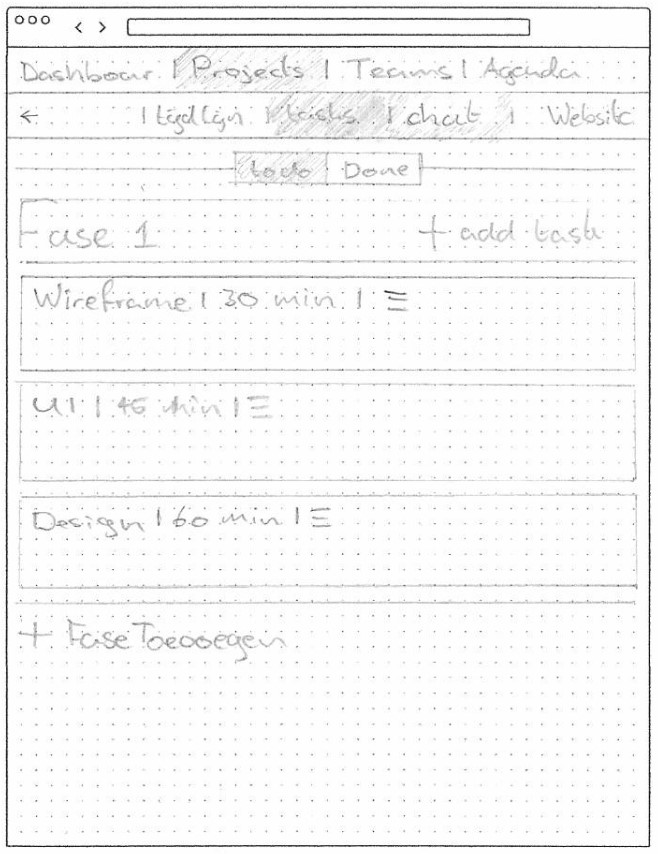 Dashboar | Projects | Teams | Agenda
← | tijdlijn | tasks | chat | Website
todo | Done
Fase 1 + add task
Wireframe | 30 min | ☰
UI | 45 min | ☰
Design | 60 min | ☰
+ Fase Toevoegen